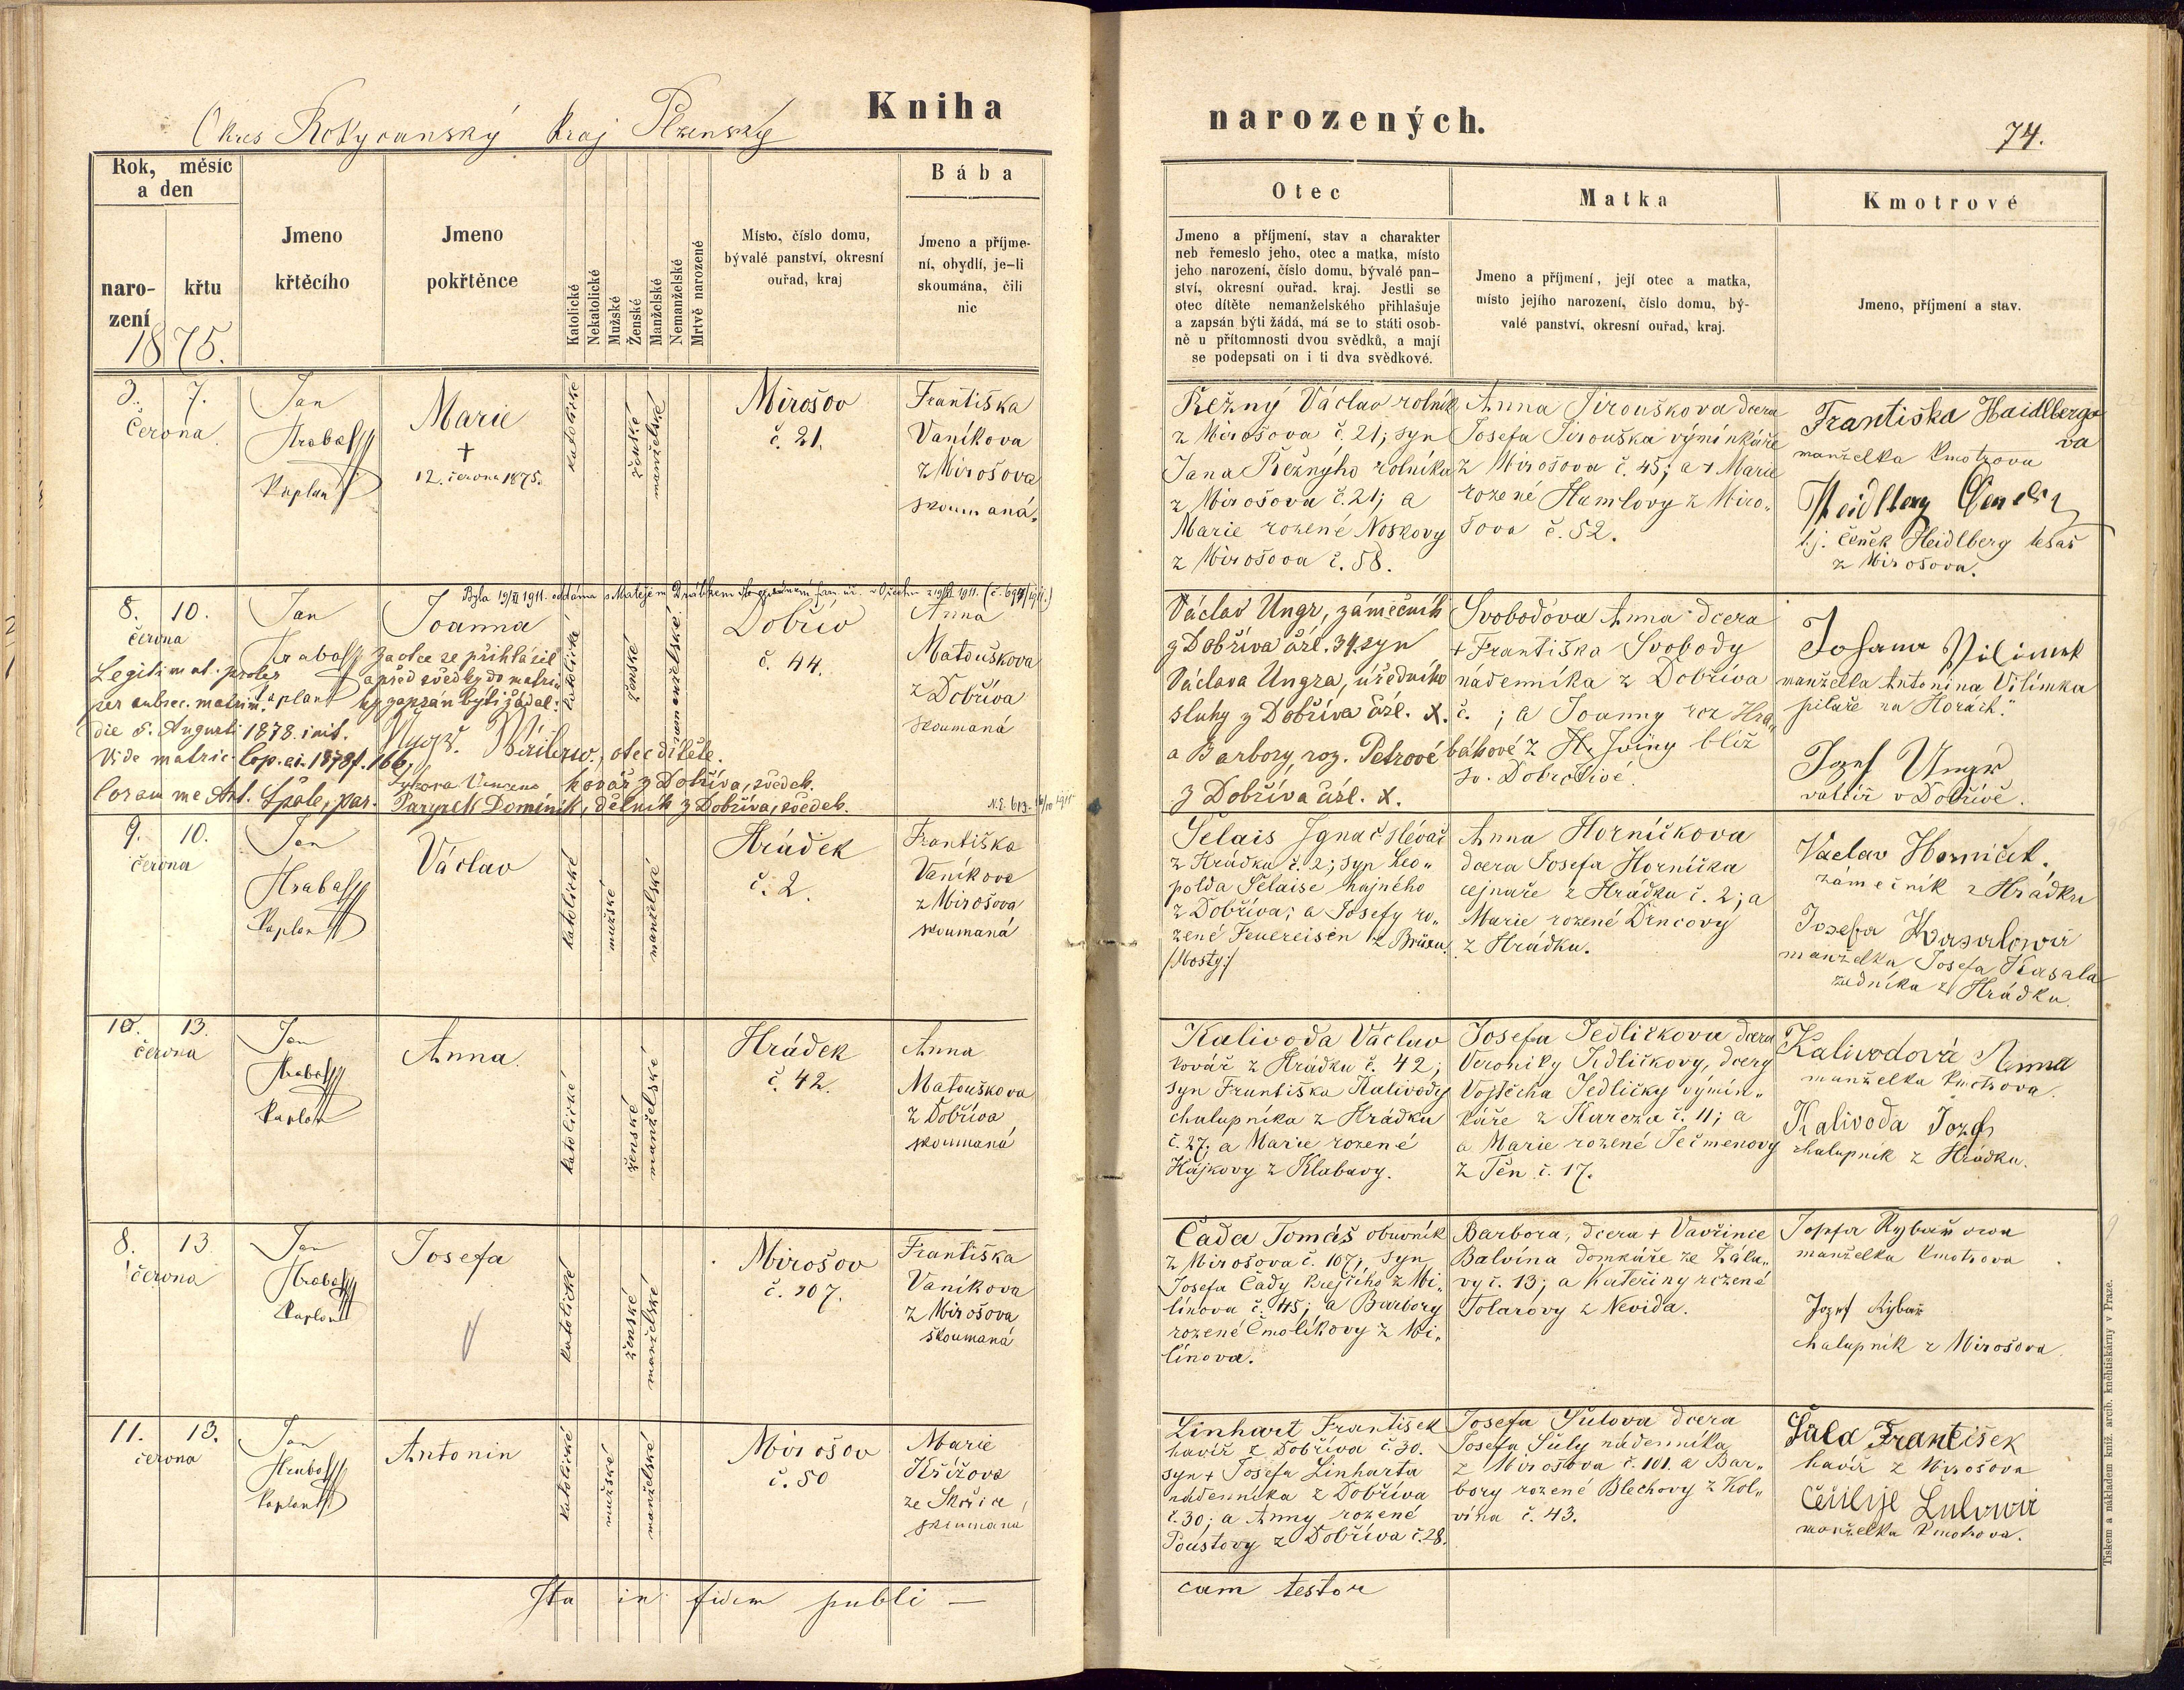 Kniha
narozených.
Okres Rokycanský kraj Plzenský
74.
Rok, měsíc
a den
naro-
zení
křtu
1875.
Jmeno
křtěcího
Jmeno
pokřtěnce
Katolické
Nekatolické
Mužské
Ženské
Manželské
Nemanželské
Mrtvě narozené
Místo, číslo domu,
bývalé panství, okresní
ouřad, kraj
Bába
Jmeno a příjme-
ní, obydlí, je-li
skoumána, čili
nic
Otec
Jmeno a příjmení, stav a charakter
neb řemeslo jeho, otec a matka, místo
jeho narození, číslo domu, bývalé pan-
ství, okresní ouřad, kraj. Jestli se
otec dítěte nemanželského přihlašuje
a zapsán býti žádá, má se to státi osob-
ně u přítomnosti dvou svědků, a mají
se podepsati on i ti dva svědkové.
Matka
Jmeno a příjmení, její otec a matka,
místo jejího narození, číslo domu, bý-
valé panství, okresní ouřad, kraj.
Kmotrové
Jmeno, příjmení a stav.
3. 7.
června
Jan
Hrabal
kaplan
Marie
+
12. června 1875.
katolické
ženské
manželské
Mirošov
č. 21.
Františka
Vaníkova
z Mirošova
skoumaná.
Režný Václav rolník
z Mirošova č. 21; syn
Jana Režnýho rolníka
z Mirošova č. 21; a
Marie rozené Noskovy
z Mirošova č. 58.
Anna Jirouškova dcera
Josefa Jirouška výminkáře
z Mirošova č. 45; a + Marie
rozené Hamrlovy z Miro„
šova č. 52.
Františka Haidlbergo
va
manželka kmotrova
Heidlberg
t.j. Čeněk Heidlberg tesař
z Mirošova.
Byla 19/XI 1911. oddána s Matějem
8. 10.
června
Jan
Hrabal
kaplan
Joanna
Za otce se přihlásil
a před svědky do matri„
ky zapsán býti žádal:
Legitimat. proles
per subsec. matrim.
die 5. Augusti 1878. init.
Vide matric. Cop. ai. 1878 f. 166.
Coram me Ant. Špale, par.
otec dítěte.
kovář z Dobříva, svědek.
Paryzek Dominik, dělník z Dobříva, svědek.
katolické
ženské
nemanželské
Dobřív
č. 44.
Anna
Matouškova
z Dobříva
skoumaná
Václav Ungr, zámečník
z Dobříva čísl. 34. syn
Václava Ungra, úředního
sluhy z Dobříva čísl. X.
a Barbory, roz. Petrové
z Dobříva čísl. X.
Svobodova Anna dcera
+ Františka Svobody
nádenníka z Dobříva
č. ; a Joanny roz Hra„
bákové z H. Jviny blíž
sv. Dobrotivé.
Johana Vilimek
manželka Antonina Vilímka
pilaře na Horách."
Jozef Ungr
valcíř v Dobřívě.
9. 10.
června
Jan
Hrabal
kaplan
Václav
katolické
mužské
manželské
Hrádek
č. 2.
Františka
Vaníkova
z Mirošova
skoumaná
Šelais Ignač slévač
z Hrádku č. 2; syn Leo„
polda Šelaise hajného
z Dobříva; a Josefy ro„
zené Feuereisen z Brüxu
/Mosty:/
Anna Horníčkova
dcera Josefa Horníčka
cejnaře z Hrádku č. 2; a
Marie rozené Drncovy
z Hrádku.
Vaclav Horniček.
zámečník z Hrádku
Josefa Kasalová
manželka Josefa Kasala
zedníka z Hrádku.
10. 13.
června
Jan
Hrabal
kaplan
Anna
katolické
ženské
manželské
Hrádek
č. 42.
Anna
Matouškova
z Dobříva
skoumaná
Kalivoda Václav
kovář z Hrádku č. 42;
syn Františka Kalivody
chalupníka z Hrádku
č. 27; a Marie rozené
Hájkovy z Klabavy.
Josefa Jedličkova dcera
Veroniky Jedličkovy, dcery
Vojtěcha Jedličky výmin„
káře z Kařeza č. 11; a
a Marie rozené Ječmenovy
z Těn č. 17.
Kalivodová Anna
manželka kmotrova.
Kalivoda Jozef
chalupník z Hrádku.
8. 13
června
Jan
Hrabal
kaplan
Josefa
katolické
ženské
manželské
Mirošov
č. 107.
Františka
Vaníkova
z Mirošova
skoumaná
Čada Tomáš obuvník
z Mirošova č. 107; syn
Josefa Čady krejčího z Mi„
línova č. 45; a Barbory
rozené Čmolíkovy z Mi„
línova.
Barbora, dcera + Vavřince
Balvína domkáře ze Žálu„
vy č. 13; a Kateřiny rozené
Tolarovy z Nevida.
Josefa Rybařova
manželka kmotrova
Jozef Rybař
chalupník z Mirošova.
11. 13.
června
Jan
Hrabal
kaplan
Antonin
katolické
mužské
manželské
Mirošov
č. 50
Marie
Křížova
ze Skořic,
skoumana
Linhart František
havíř z Dobříva č. 30.
syn + Josefa Linharta
nádenníka z Dobříva
č. 30; a Anny rozené
Poustovy z Dobříva č. 28.
Josefa Šulova dcera
Josefa Šuly nádenníka
z Mirošova č. 101. a Bar„
bory rozené Blechovy z Kol„
vína č. 43.
Šula František
havíř z Mirošova
Cecilije Šulová
manželka kmotrova.
Ita in fidem publi —
cam testor
Tiskem a nákladem kníž. arcib. kněhtiskárny v Praze.